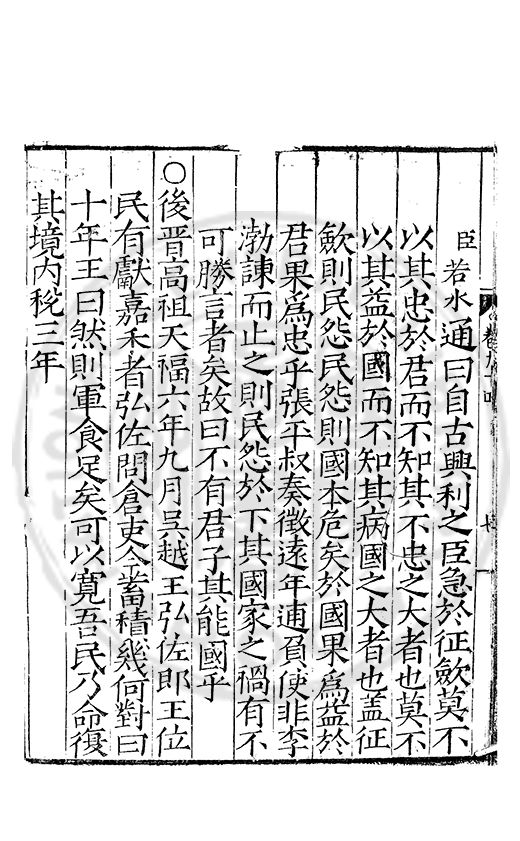 臣若水通曰自古興利之臣急於征歛莫不
以其忠於君而不知其不忠之大者也莫不
以其益於國而不知其病國之大者也盖征
歛則民怨民怨則國本危矣於國果爲益於
君果爲忠乎張平叔奏徵遠年逋負使非李
渤諌而止之則民怨於下其國家之禍有不
可勝言者矣故曰不有君子其能國乎
○後晋高祖天福六年九月吳越王弘佐即王位
民有獻嘉禾者弘佐問倉吏今蓄積幾何對曰
十年王曰然則軍食足矣可以寬吾民乃命復
其境内稅三年